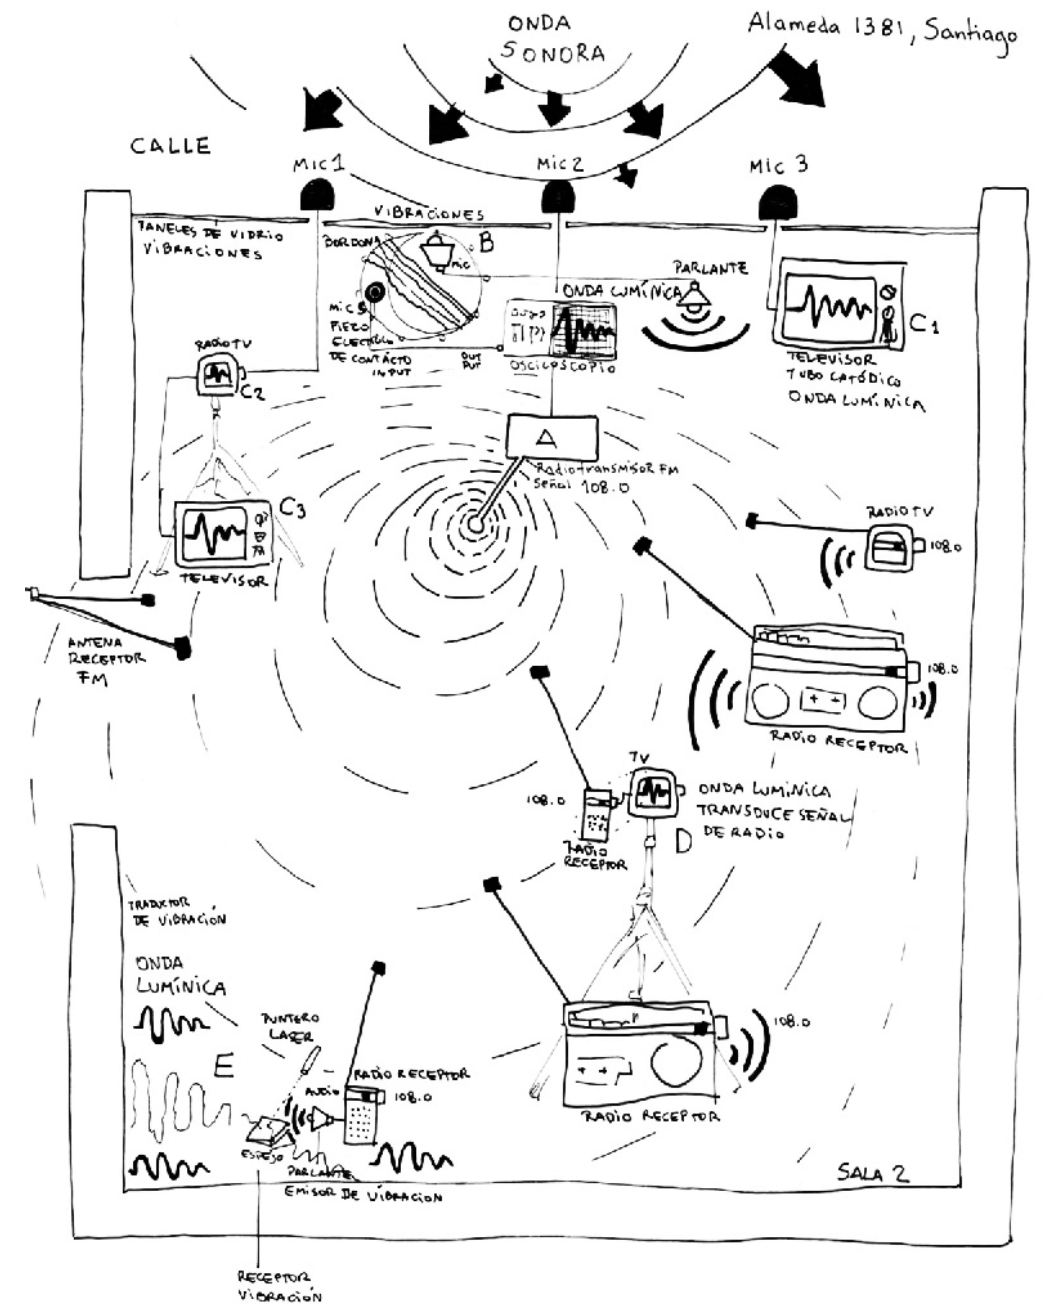 ONDA
SONORA
Alameda 1381, Santiago
CALLE
MIC 1
MIC 2
MIC 3
PANELES DE VIDRIO
VIBRACIONES
VIBRACIONES
BORDONA
B
MIC
MIC 3
PIEZO
ELECTRICO
DE CONTÁCTO
INPUT
OUT
PUT
ONDA LUMÍNICA
OSCILOSCOPIO
PARLANTE
C1
TELEVISOR
TUBO CATÓDICO
ONDA LUMÍNICA
RADIO TV
C2
C3
TELEVISOR
Radiotransmisor FM
Señal 108.0
RADIO TV
108.0
ANTENA
RECEPTOR
FM
108.0
RADIO RECEPTOR
TV
108.0
RADIO
RECEPTOR
ONDA LUMÍNICA
TRANSDUCE SEÑAL
DE RADIO
D
TRADUCTOR
DE VIBRACIÓN
ONDA
LUMÍNICA
PUNTERO
LASER
E
AUDIO
RADIO RECEPTOR
108.0
108.0
RADIO RECEPTOR
ESPEJO
PARLANTE
EMISOR DE VIBRACION
SALA 2
RECEPTOR
VIBRACIÓN